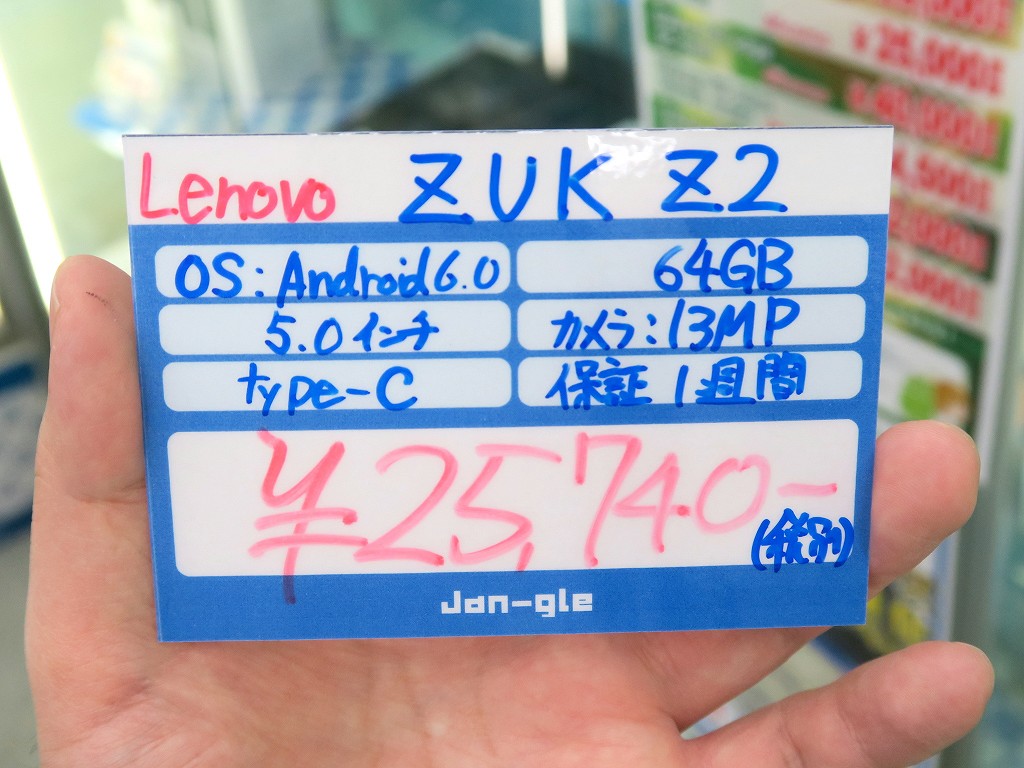 Lenovo ZUK Z2
OS:Android6.0
64GB
5.0インチ
カメラ:13MP
type-C
保証 1週間
¥25,740-
(税別)
Jan-gle
¥25,000